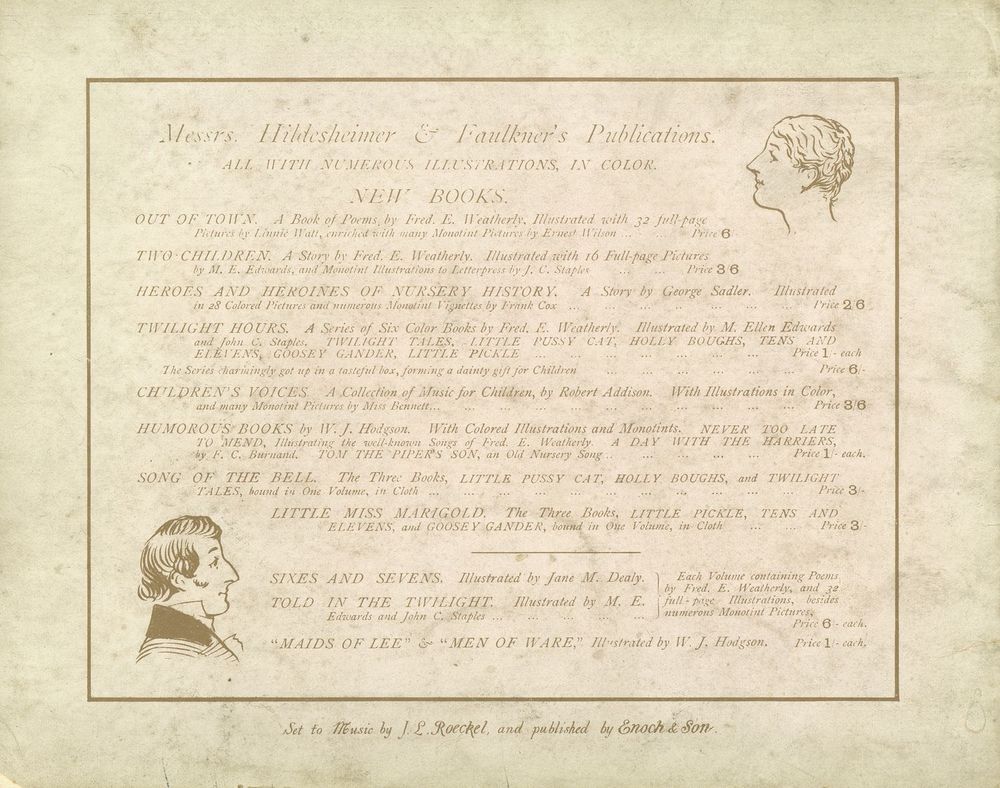 Messrs. Hildesheimer & Faulkner's Publications.
ALL WITH NUMEROUS ILLUSTRATIONS, IN COLOR.
NEW BOOKS.
OUT OF TOWN. A Book of Poems, by Fred. E. Weatherly. Illustrated with 32 full-page
Pictures by Linnie Watt, enriched with many Monotint Pictures by Ernest Wilson ... ... Price 6
TWO CHILDREN. A Story by Fred. E. Weatherly. Illustrated with 16 Full-page Pictures
by M. E. Edwards, and Monotint Illustrations to Letterpress by J. C. Staples ... ... Price 3/6
HEROES AND HEROINES OF NURSERY HISTORY. A Story by George Sadler. Illustrated
in 28 Colored Pictures and numerous Monotint Vignettes by Frank Cox ... ... ... ... ... ... Price 2/6
TWILIGHT HOURS. A Series of Six Color Books by Fred. E. Weatherly. Illustrated by M. Ellen Edwards
and John C. Staples. TWILIGHT TALES, LITTLE PUSSY CAT, HOLLY BOUGHS, TENS AND
ELEVENS, GOOSEY GANDER, LITTLE PICKLE ... ... ... ... ... ... ... Price 1/- each
The Series charmingly got up in a tasteful box, forming a dainty gift for Children ... ... ... ... ... Price 6/-
CHILDREN'S VOICES. A Collection of Music for Children, by Robert Addison. With Illustrations in Color,
and many Monotint Pictures by Miss Bennett... ... ... ... ... ... ... ... ... Price 3/6
HUMOROUS BOOKS by W. J. Hodgson. With Colored Illustrations and Monotints. NEVER TOO LATE
TO MEND, Illustrating the well-known Songs of Fred. E. Weatherly. A DAY WITH THE HARRIERS,
by F. C. Burnand. TOM THE PIPER'S SON, an Old Nursery Song ... ... ... ... ... Price 1/- each.
SONG OF THE BELL. The Three Books, LITTLE PUSSY CAT, HOLLY BOUGHS, and TWILIGHT
TALES, bound in One Volume, in Cloth ... ... ... ... ... ... ... ... ... Price 3/-
LITTLE MISS MARIGOLD. The Three Books, LITTLE PICKLE, TENS AND
ELEVENS, and GOOSEY GANDER, bound in One Volume, in Cloth ... ... Price 3/-
SIXES AND SEVENS. Illustrated by Jane M. Dealy.
TOLD IN THE TWILIGHT. Illustrated by M. E.
Edwards and John C. Staples ... ... ... ... ...
Each Volume containing Poems
by Fred. E. Weatherly, and 32
full-page Illustrations, besides
numerous Monotint Pictures.
Price 6/- each.
"MAIDS OF LEE" & "MEN OF WARE," Illustrated by W. J. Hodgson. Price 1/- each.
Set to Music by J. L. Roeckel, and published by Enoch & Son.